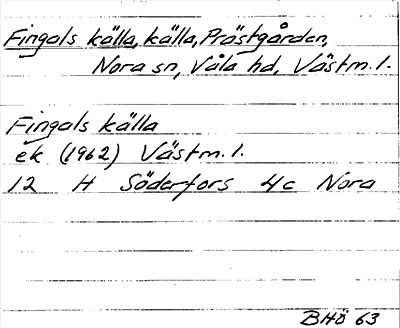 Fingals källa, källa, Prästgården,
Nora sn, Våla hd, Västm. l.
Fingals källa
ek (1962) Västm. l.
12 H Söderfors 4c Nora
BHö 63